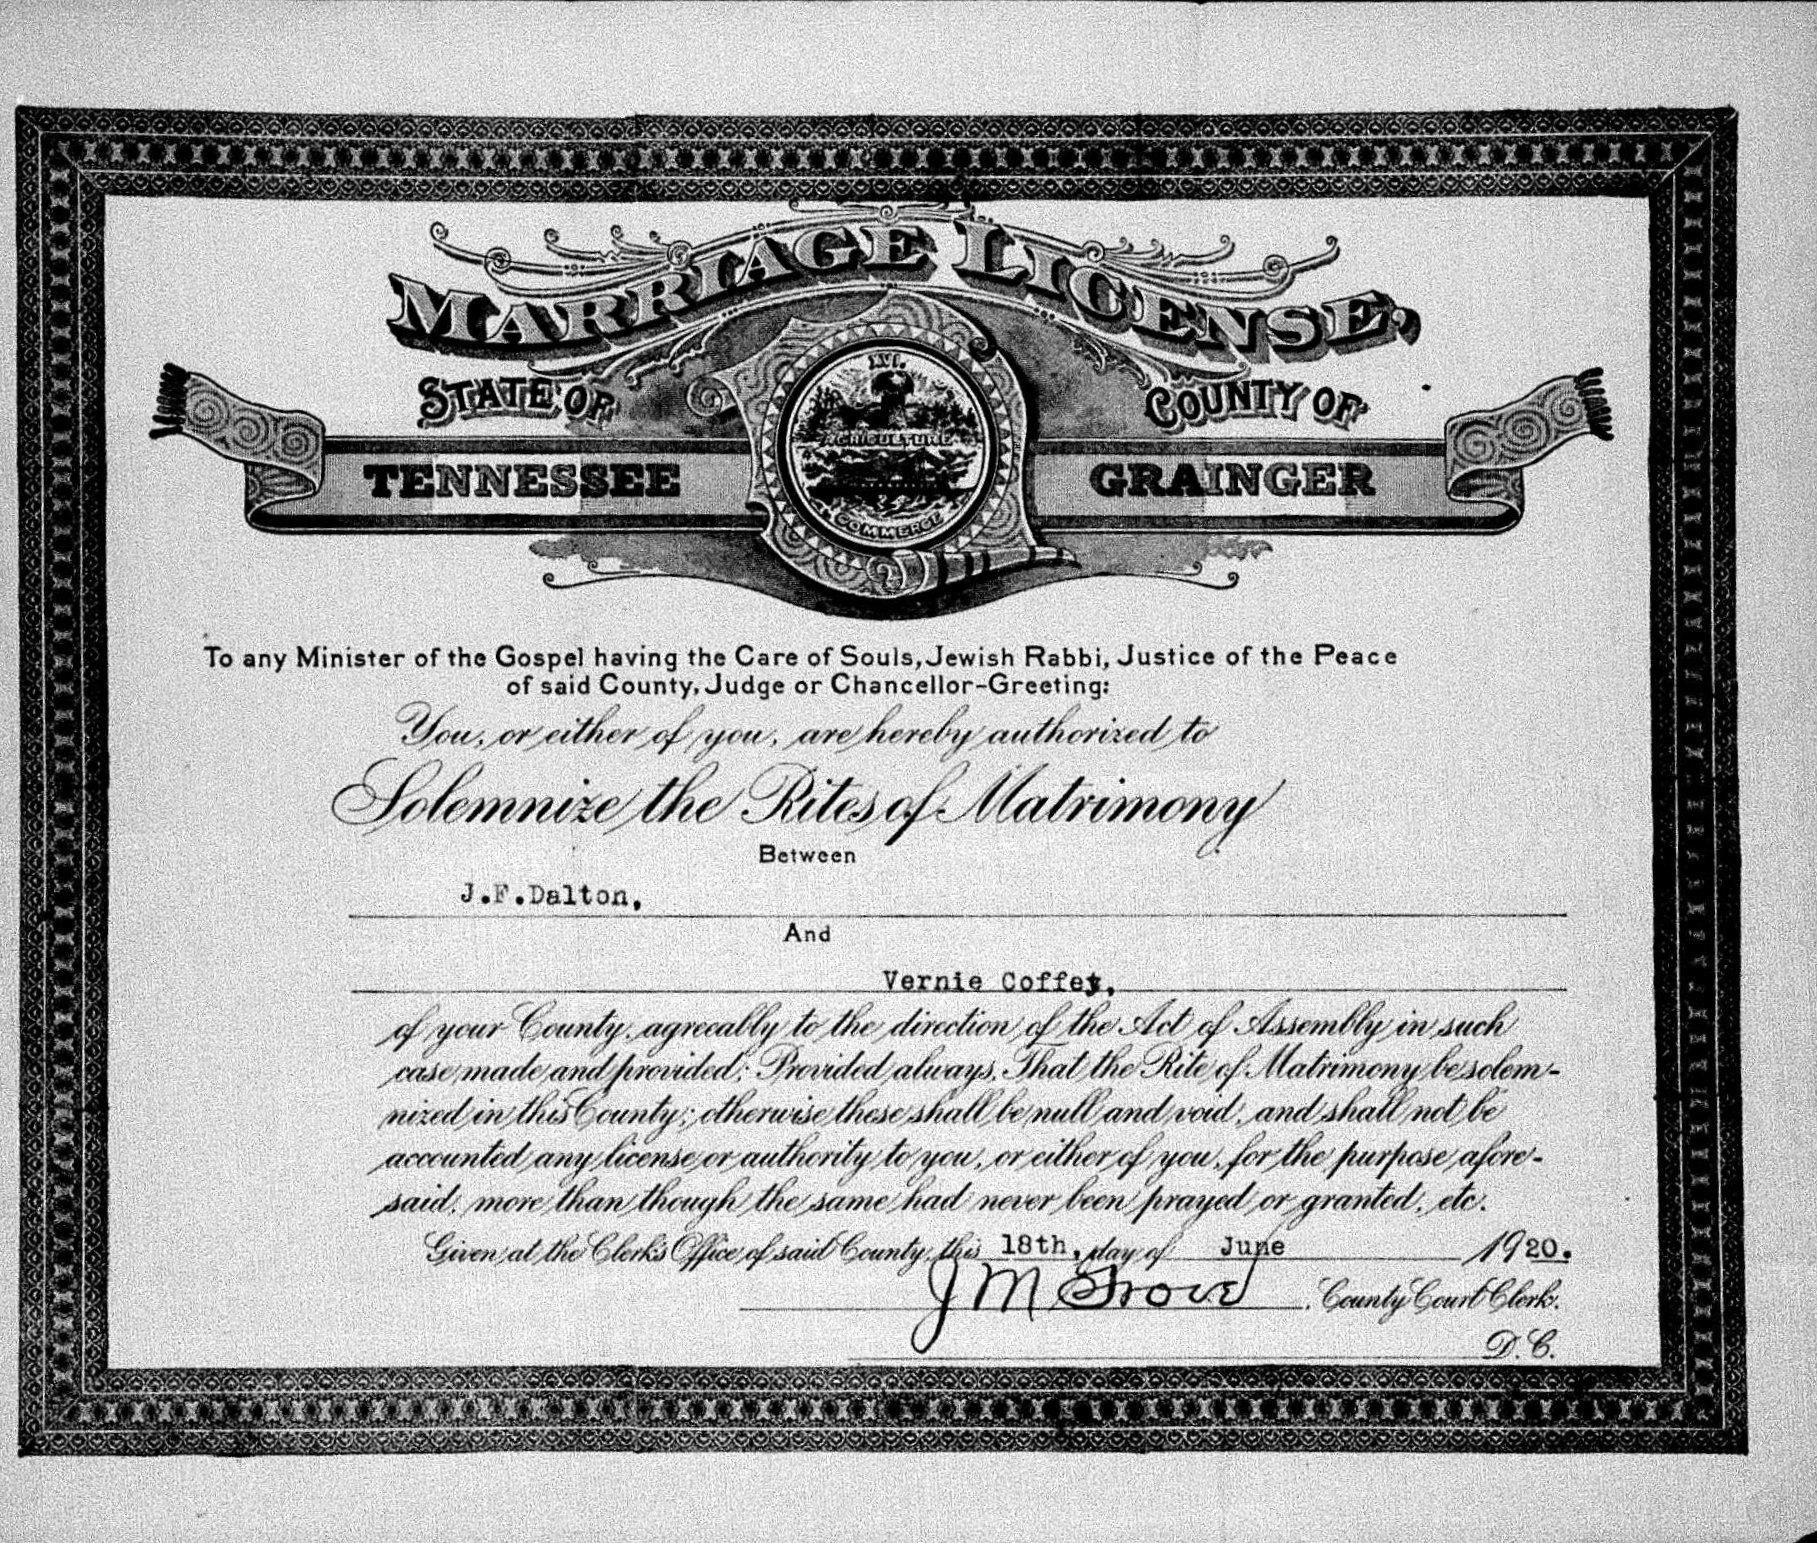 MARRIAGE LICENSE,
STATE OF
COUNTY OF
TENNESSEE
GRAINGER
XVI.
AGRICULTURE
COMMERCE
To any Minister of the Gospel having the Care of Souls, Jewish Rabbi, Justice of the Peace
of said County, Judge or Chancellor-Greeting:
You, or either of you, are hereby authorized to
Solemnize the Rites of Matrimony
Between
J.F.Dalton,
And
Vernie Coffey,
of your County, agreeably to the direction of the Act of Assembly in such
case made and provided; Provided always, That the Rite of Matrimony be solem-
nized in this County; otherwise these shall be null and void, and shall not be
accounted any license or authority to you, or either of you, for the purpose afore-
said, more than though the same had never been prayed or granted, etc.
Given at the Clerk's Office of said County, this 18th, day of June 1920.
J M Grove, County Court Clerk.
D. C.